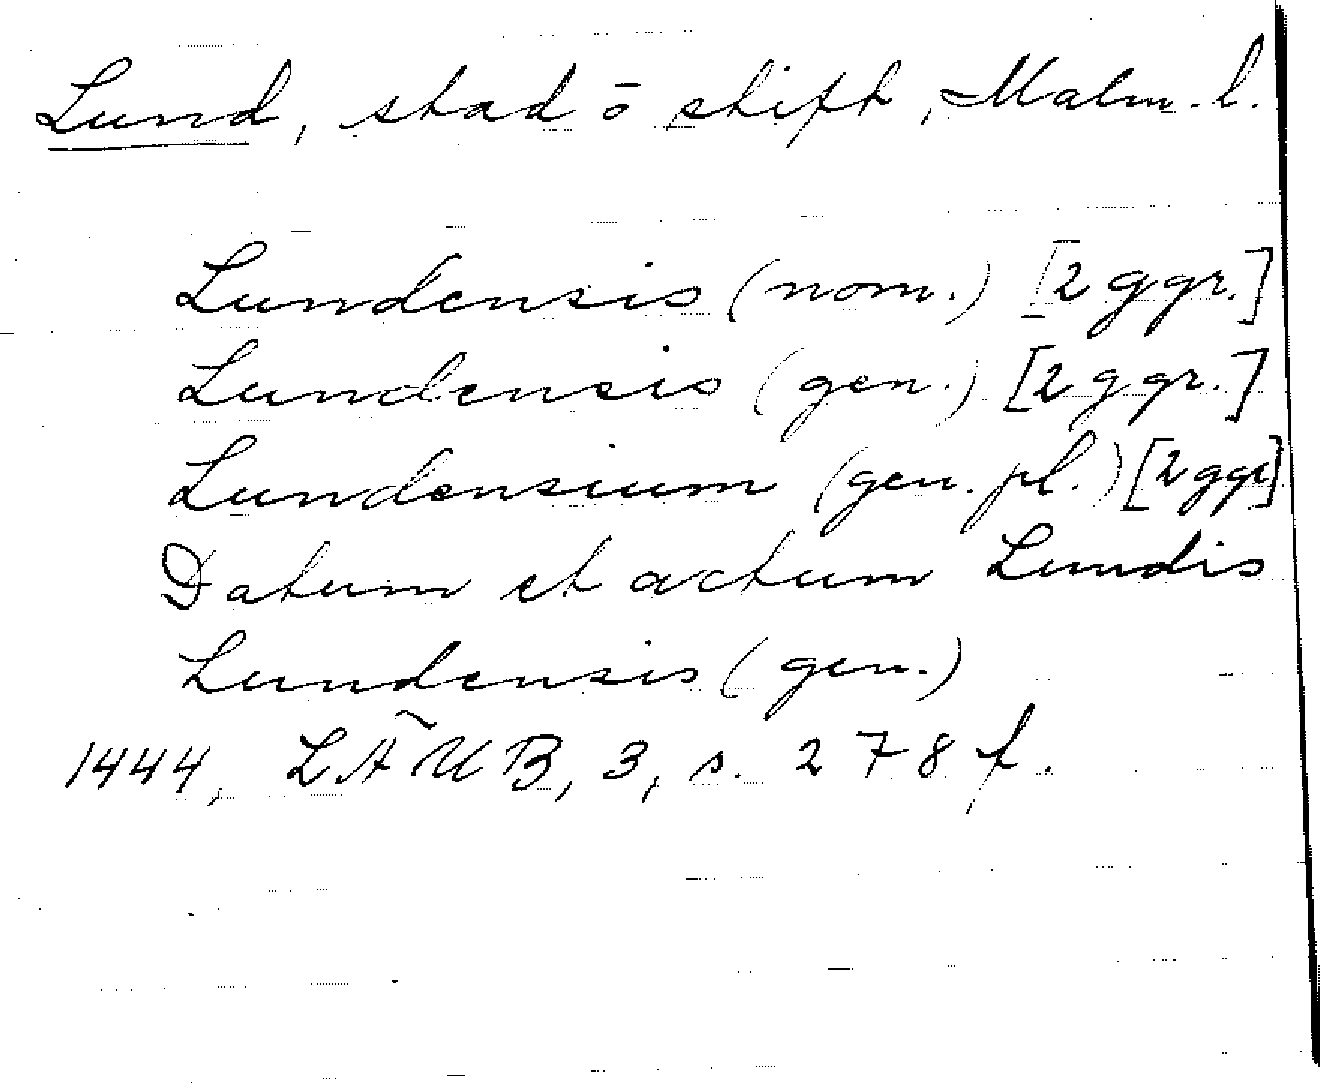 Lund, stad o stift, Malm. l.
Lundensis (nom.) [2 ggr.]
Lundensis (gen.) [2 ggr.]
Lundensium (gen. pl.) [2 ggr]
Datum et actum Lundis
Lundensis (gen.)
1444, LÄUB, 3, s. 278 f.